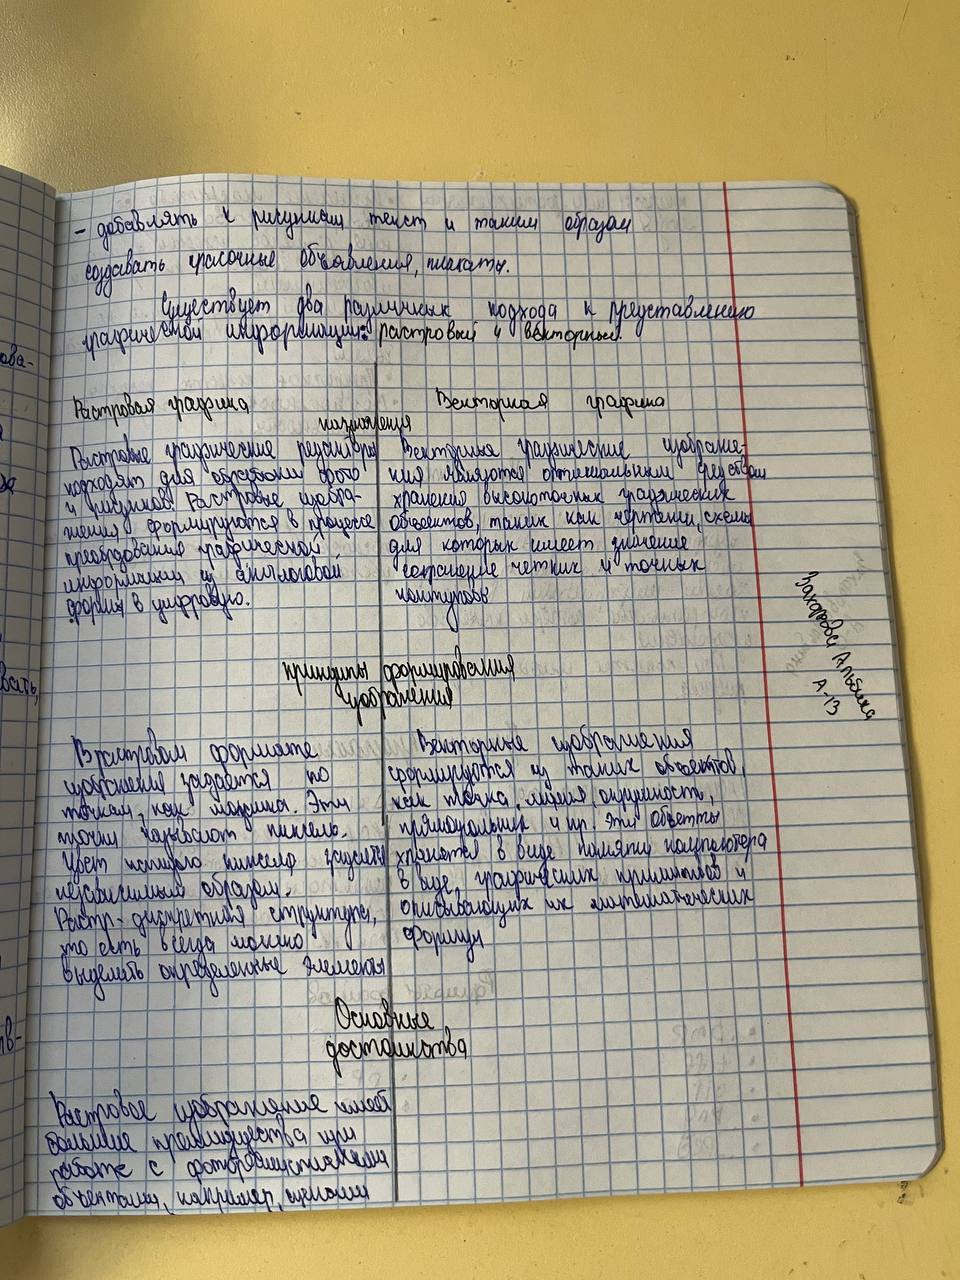 - добавлять к рисункам текст и таким образом
создавать красочные объявления, плакаты.
Существует два различных подхода к представлению
графической информации: растровый и векторный.
Растровая графика
Векторная графика
назначения
Растровые графические редакторы
подходят для обработки фото
и рисунков. Растровые изобра-
жения формируются в процессе
преобразования графической
информации из аналоговой
формы в цифровую.
Векторные графические изображе-
ния являются оптимальным средством
хранения высокоточных графических
объектов, таких как чертежи, схемы
для которых имеет значение
сохранение четких и точных
контуров
принципы формирования
изображения
В растровом формате
изображение задаётся по
точкам, как мозаика. Эти
точки называют пиксель.
Цвет каждого пикселя задается
независимым образом.
Растр - дискретная структура,
то есть всегда можно
выделить определенные элементы
Векторные изображения
формируются из таких объектов,
как точка, линия, окружность,
прямоугольник и пр. Эти объекты
хранятся в виде памяти компьютера
в виде, графических примитивов и
описывающих их математических
формул
Основные
достоинства
Растровое изображение имеет
большие преимущества при
работе с фотореалистичными
объектами, например, сценами
Захарова Альбина
А-13
ова-
вать,
тв-